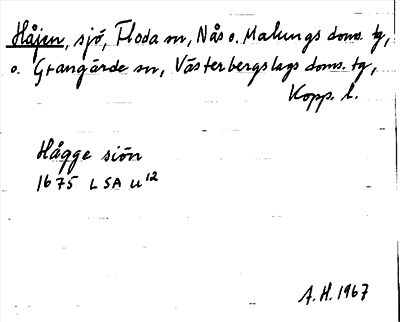 Håjen, sjö, Floda sn, Nås o. Malungs doms. tg,
o. Grangärde sn, Västerbergslags doms. tg,
Kopp. l.
Hågge siön
1675 LSA U¹²
A.H. 1967